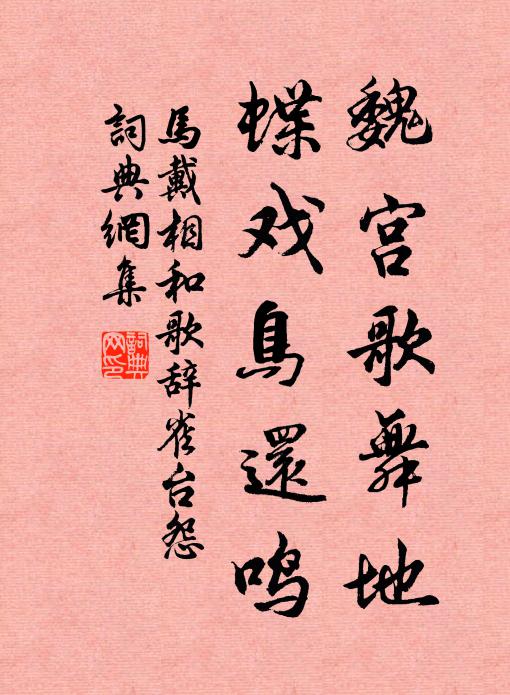 魏宫歌舞地
蝶戏鳥還鸣
馬戴相和歌辞雀台怨
詞典網集
詞典网印